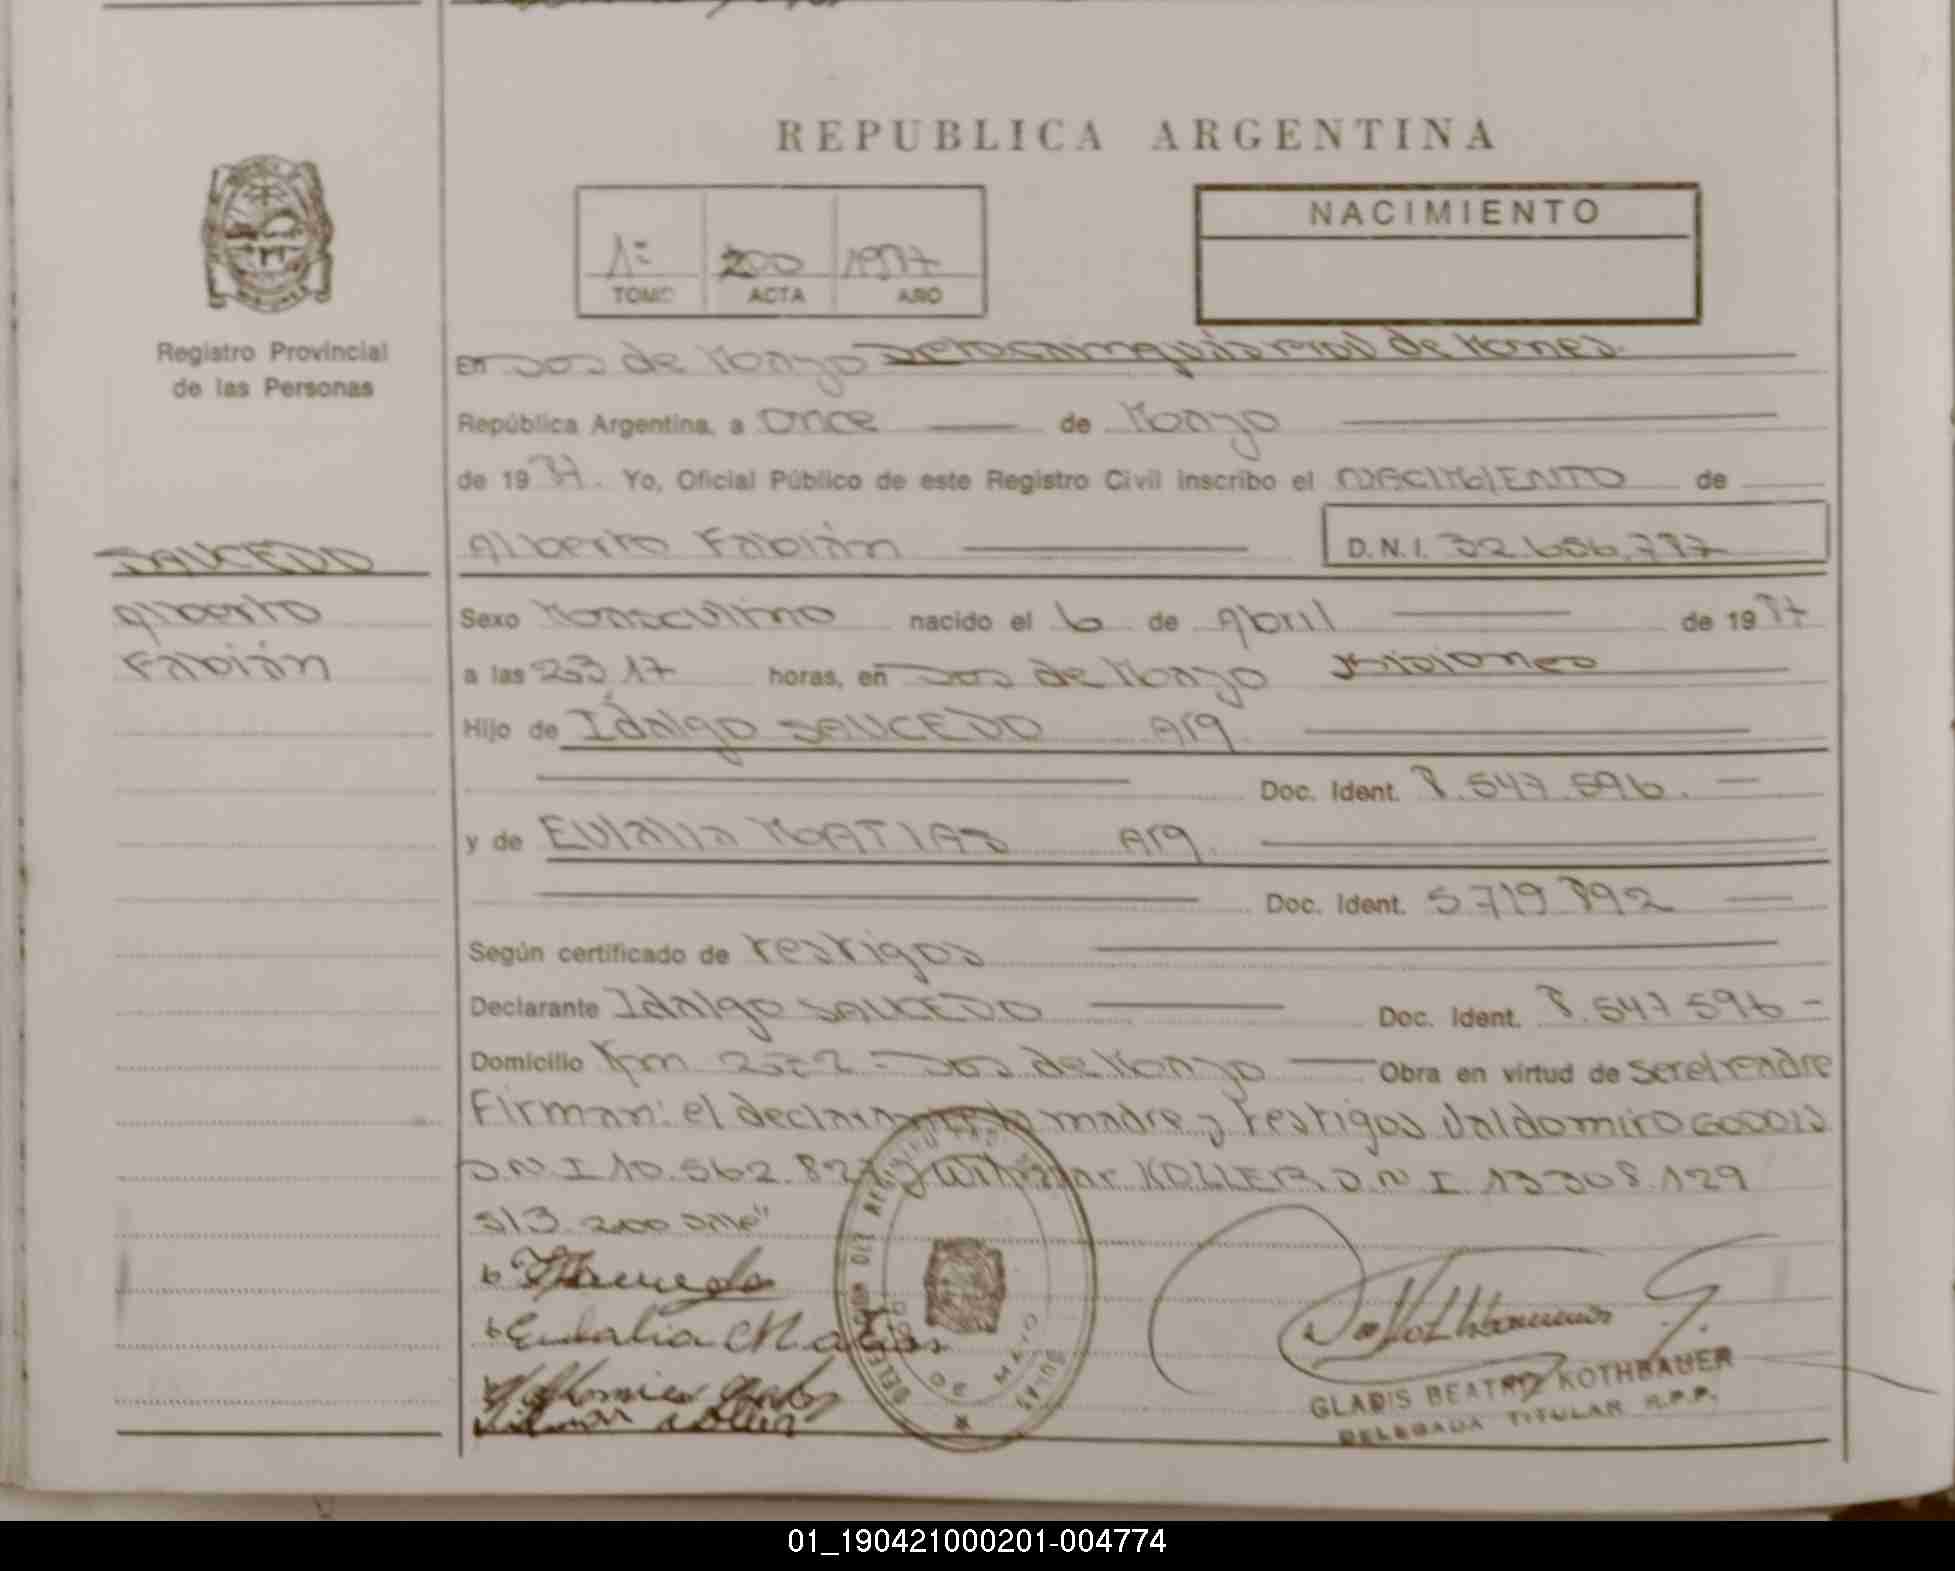 REPUBLICA ARGENTINA
NACIMIENTO
1º 200 1987
TOMO ACTA AÑO
Registro Provincial
de las Personas
En Dos de Mayo de Misiones
República Argentina, a once de Mayo
de 19 87. Yo, Oficial Público de este Registro Civil inscribo el NACIMIENTO de
Alberto Fabián D.N.I. 32.656.787
SAUCEDO
Alberto
Fabián
Sexo Masculino nacido el 6 de Abril de 19 87
a las 23 17 horas, en Dos de Mayo Misiones
Hijo de Idalgo SAUCEDO Arg.
Doc. Ident. 8.547.596.
y de Eulalia MATIAS Arg.
Doc. Ident. 5719892
Según certificado de testigos
Declarante Idalgo SAUCEDO Doc. Ident. 8.547.596
Domicilio Km 252 - Dos de Mayo Obra en virtud de ser el padre
Firman: el declarante la madre y testigos Valdomiro GODOIS
D.N.I 10.562.827 y Wilmar KOLLER D.N.I. 13308.129
S/3 200
Saucedo
Eulalia Matias
DOS DE MAYO
GLADIS BEATRIZ KOTHBAUER
DELEGADA TITULAR R.P.P.
01_190421000201-004774